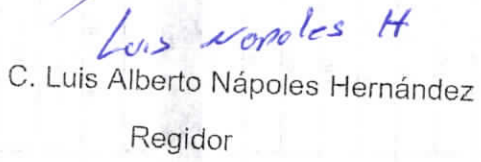 Luis Napoles H
C. Luis Alberto Nápoles Hernández
Regidor